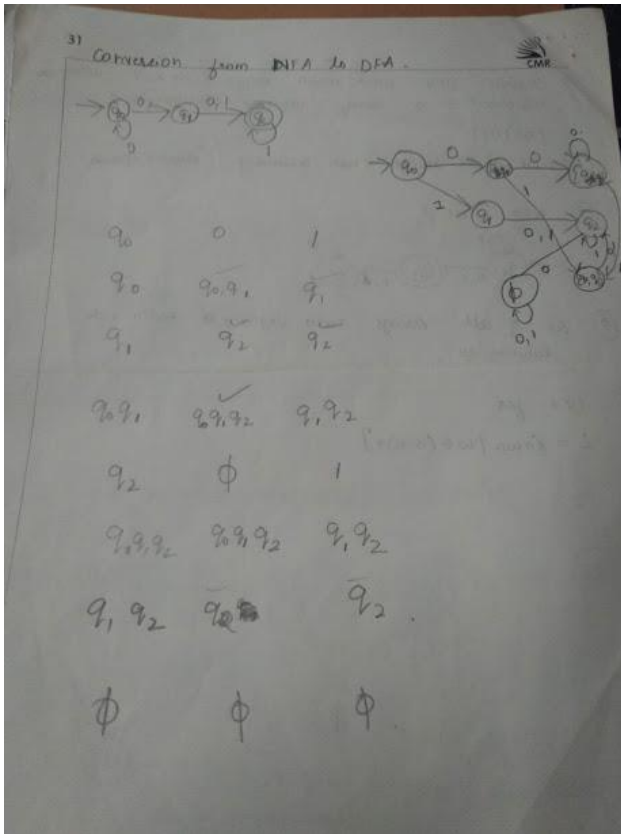 31
Conversion from NFA to DFA.
CMR
0, 0,1
0 1
q0 0 0
1 1
q1 0,1 q2
0
ϕ
0,1
q0 0 1
q0 q0,q1 q1
q1 q2 q2
q0q1 q0q1q2 q1q2
q2 ϕ 1
q0q1q2 q0q1q2 q1q2
q1 q2 q2 q2.
ϕ ϕ ϕ